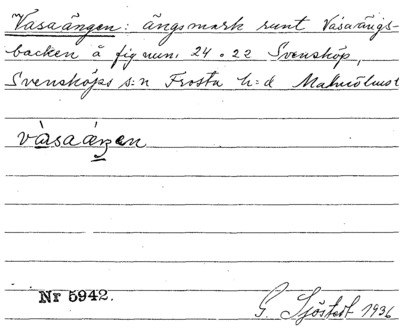 Vasaängen: ängsmark runt Vasaängs-
backen å fig num. 24 o 22 Svensköp,
Svensköps s:n Frosta h:d Malmöhus l
vàsaáŋen
Nr 5942.
G. Sjöstedt 1936